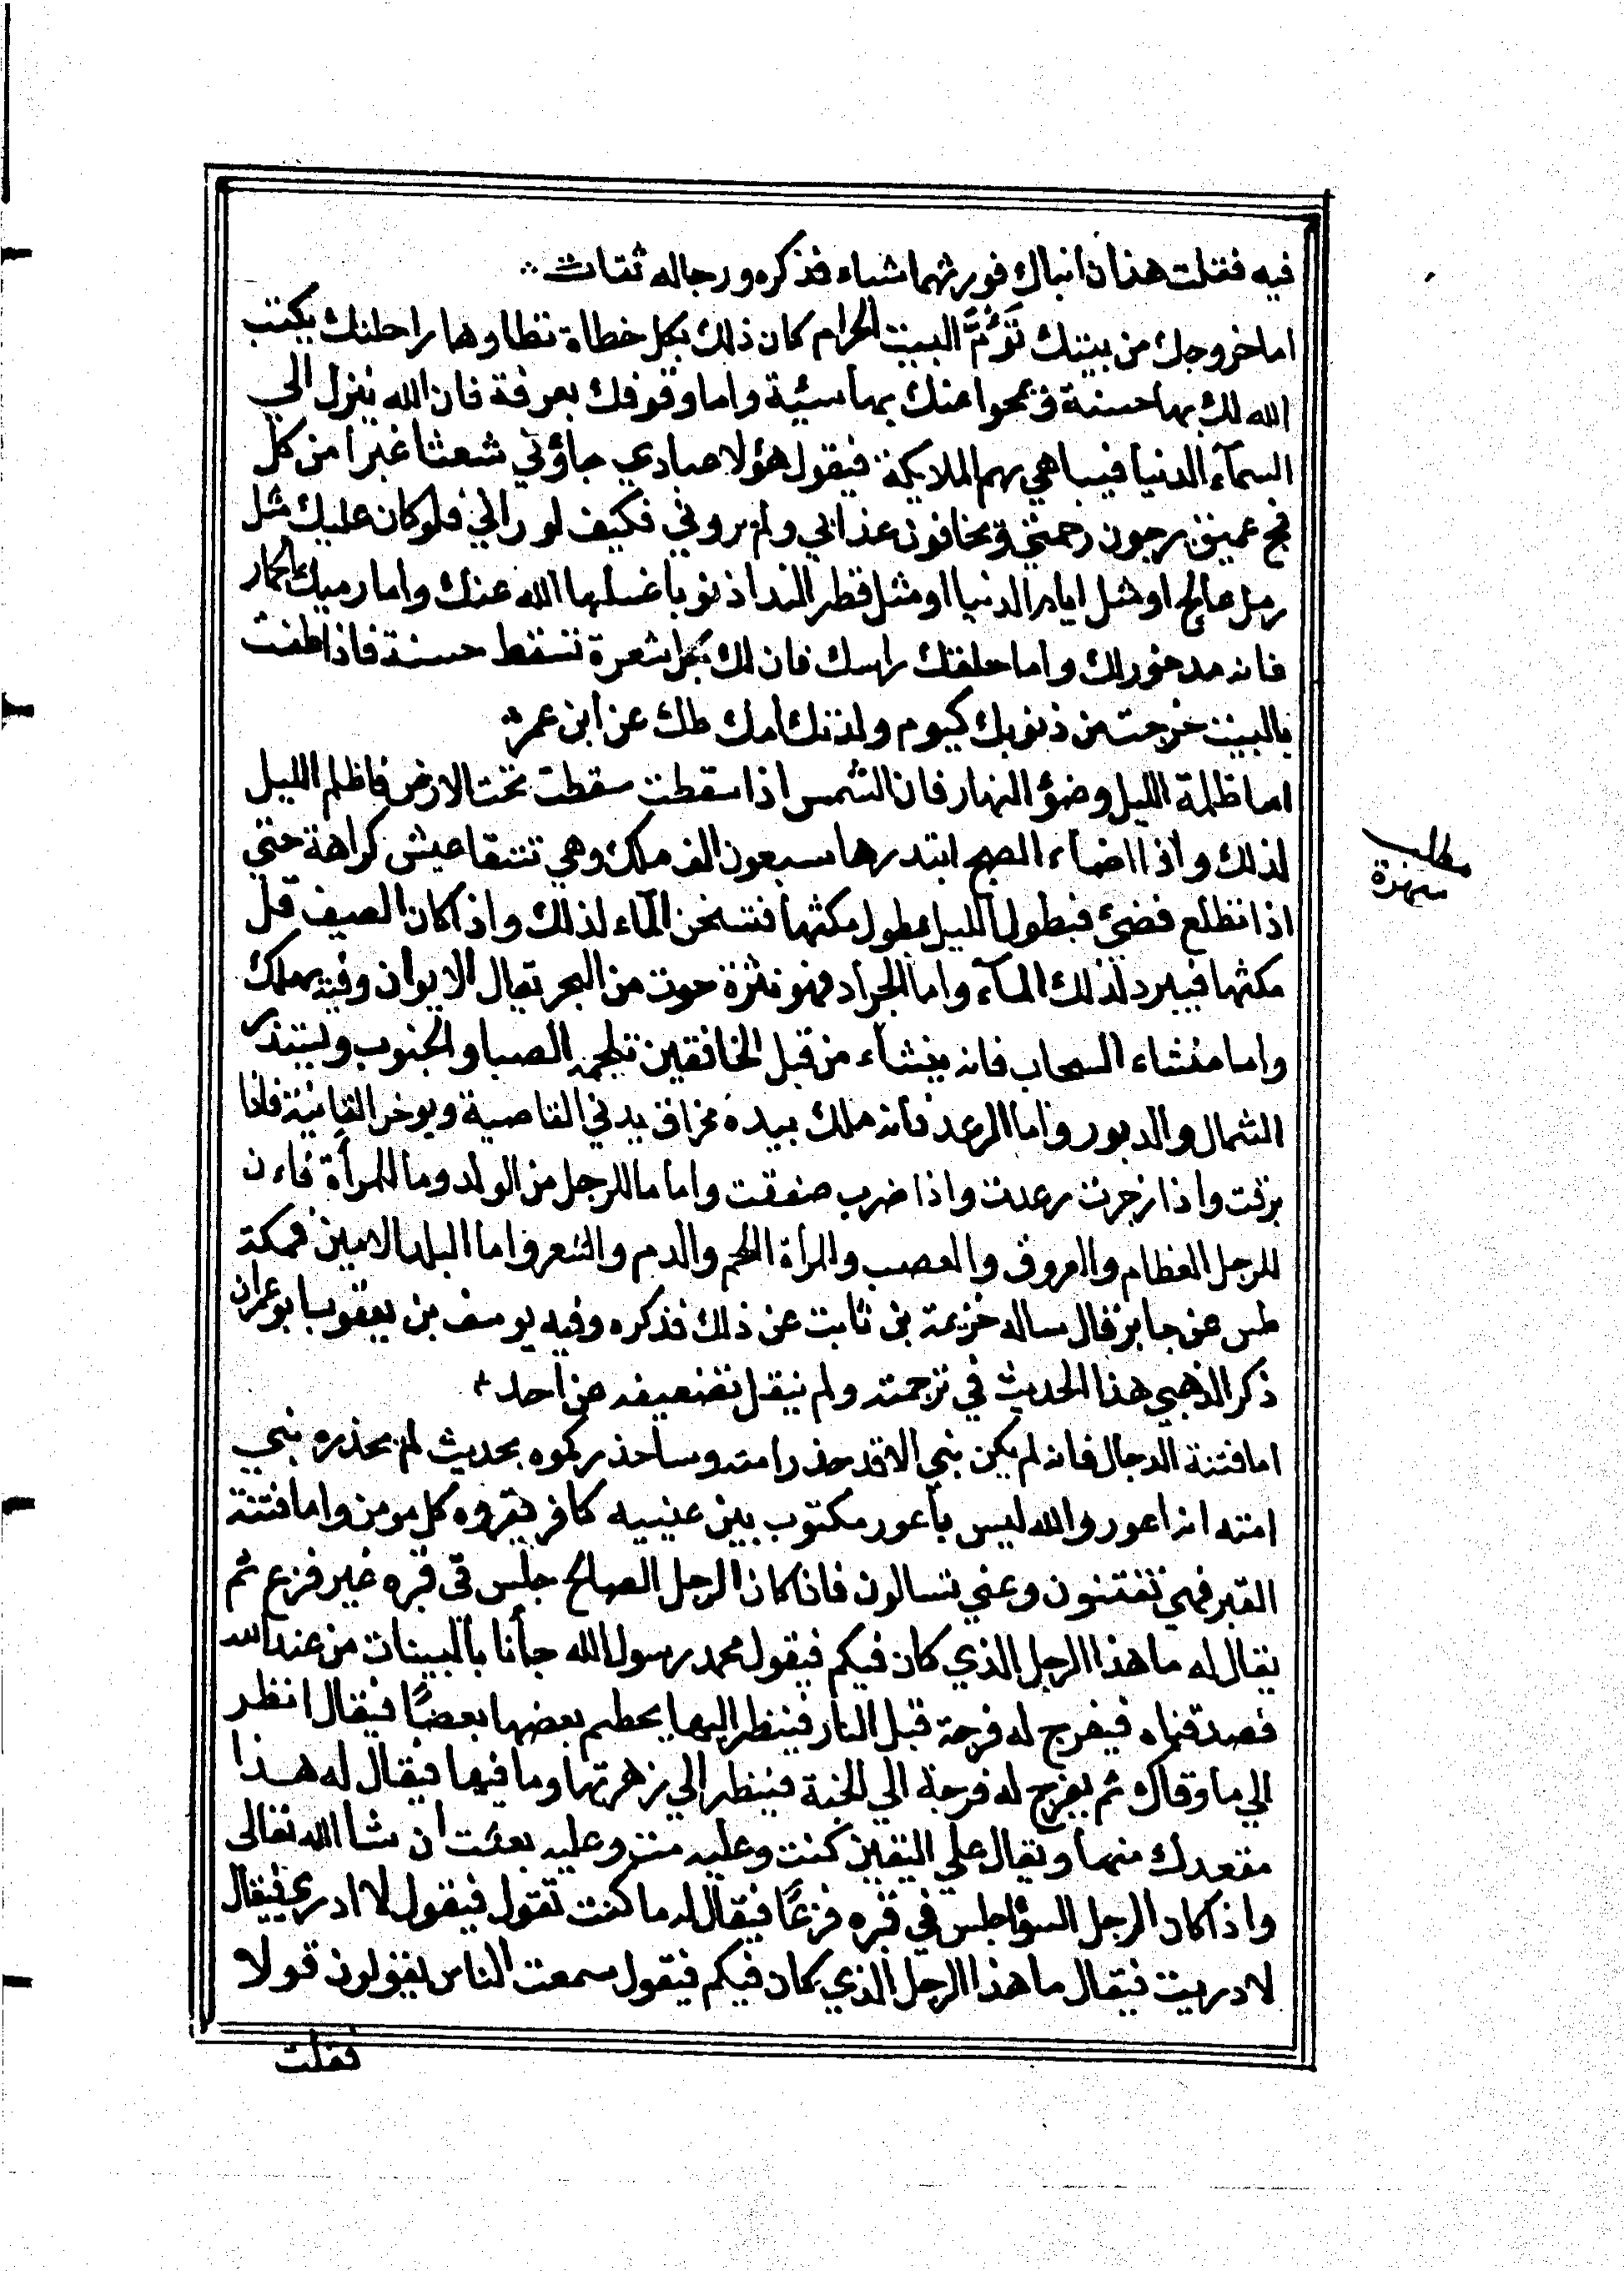 فيه فقلت هذان انباك فورثهما شاء فذكره ورجاله ثقات
اما خروجك من بيتك تَؤُمَّ البيت الحرام كان ذلك بكل خطاة تطاوها راحلتك يكتب
الله لك بها حسنة ويمحوا عنك بها سيئة واما وقوفك بعرفة فان الله ينزل الي
السمآء الدنيا فيباهي بهم الملايكة فيقول هؤلا عبادي جاؤني شعثا غبرا من كل
فج عميق يرجون رحمتي ويخافون عذابي ولم يروني فكيف لو راني فلو كان عليك مثل
رمل عالج او مثل ايام الدنيا او مثل قطر الندا ذنوبا غسلها الله عنك واما رميك الجمار
فانه مدخور لك واما حلقك راسك فان لك بكل شعرة تسقط حسنة فاذا طفت
بالبيت خرجت من ذنوبك كيوم ولدتك امك طك عن ابن عمر
اما ظلمة الليل وضؤ النهار فان الشمس اذا سقطت سقطت تحت الارض فاظلم الليل
لذلك واذا اضاء الصبح ابتدرها سبعون الف ملك وهي تتقاعيش كراهة حتي
اذا تطلع فضئ فبطول الليل بطول مكثها فتسخن المآء لذلك واذا كان الصيف قل
مكثها فيبرد لذلك المآء واما الجراد فهو نثرة حوت من البحر يقال الايوان وفيه يهلك
واما منشاء السحاب فانه ينشاء من قبل الخافقين تلجمه الصبا والجنوب ويستدر
الشمال والدبور واما الرعد فانه ملك بيده مخراق يدني القاصية ويوخر الفانية فاذا
برقت واذا زجرت رعدت واذا ضرب صعقت واما ما للرجل من الولد وما للمرأة فاءن
للرجل العظام والعروق والعصب والمرأة اللحم والدم والشعر واما البلد الامين فمكة
طس عن جابر قال ساله خزيمة بن ثابت عن ذلك فذكره وفيه يوسف بن يعقوب ابو عمران
ذكر الذهبي هذا الحديث في ترجمته ولم ينقل تضعيفه عن احد
اما فتنة الدجال فانه لم يكن نبي الا قد حذر امته وساحذركموه بحديث لم يحذره نبي
امته انه اعور والله ليس بأعور مكتوب بين عينيه كافر يقروه كل مومن واما فتنة
القبر فبي تفتنون وعني تسالون فاذا كان الرجل الصالح جلس في قبره غير فزع ثم
يقال له ما هذا الرجل الذي كان فيكم فيقول محمد رسول الله جأنا بالبينات من عند الله
فصدقناه فيفرج له فرجة قبل النار فينظر اليها يحطم بعضها بعضًا فيقال انظر
الي ما وقاك ثم يفرج له فرجة الي الجنة فينظر الي زهرتها وما فيها فيقال له هذا
مقعدك منها ويقال علي اليقين كنت وعليه مت وعليه بعثت ان شا الله تعالى
واذا كان الرجل السؤ اجلس في قبره فزعًا فيقال له ما كنت تقول فيقول لا ادري فيقال
لا دريت فيقال ما هذا الرجل الذي كان فيكم فيقول سمعت الناس يقولون قولا
فقلت
مطلب